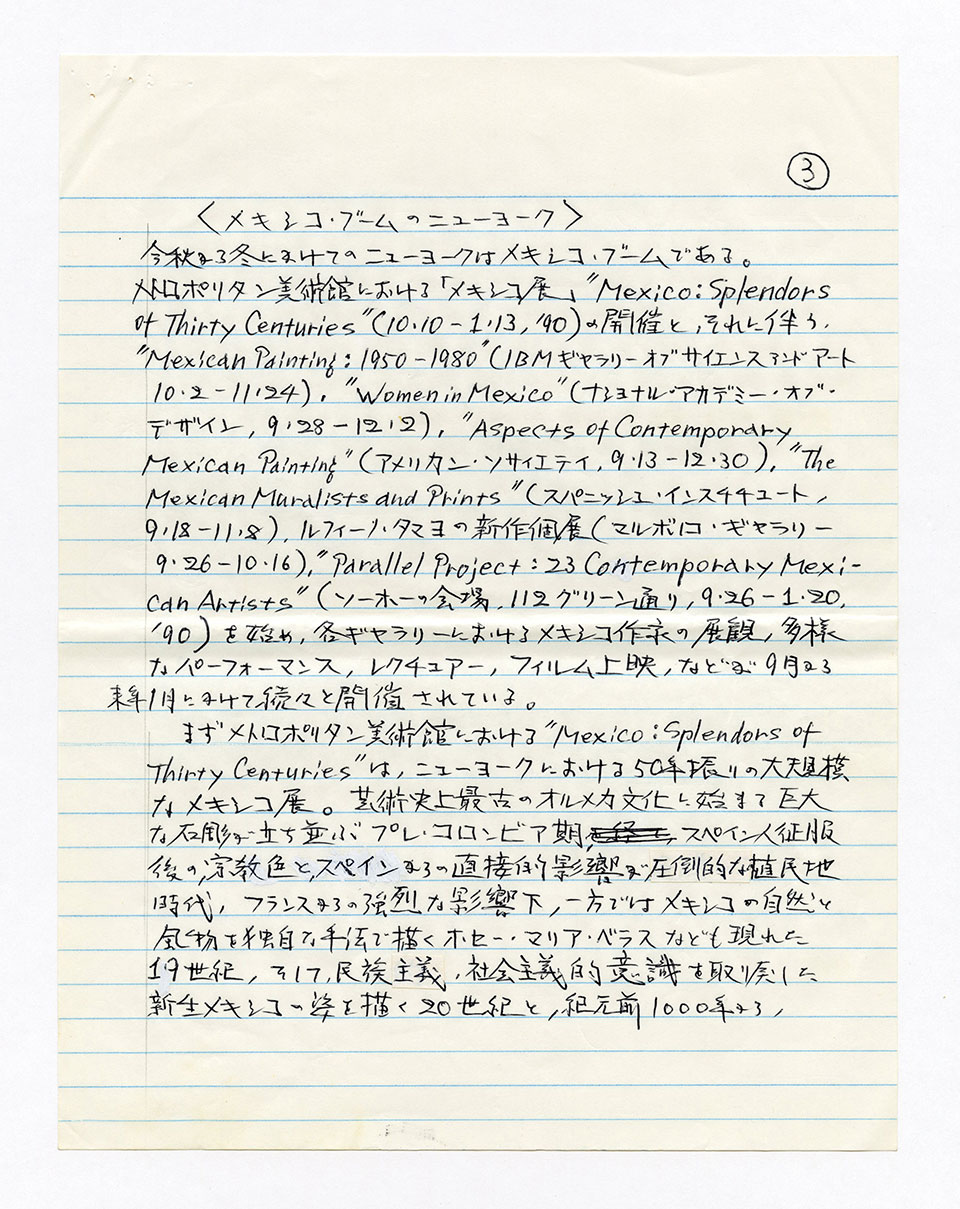 ③
〈メキシコ・ブームのニューヨーク〉
今秋から冬にかけてのニューヨークはメキシコ・ブームである。
メトロポリタン美術館における「メキシコ展」"Mexico: Splendors
of Thirty Centuries"(10・10－1・13, '90)の開催と、それに伴う、
"Mexican Painting: 1950－1980"(IBMギャラリーオブサイエンスアンドアート
10・2－11・24)、"Women in Mexico"(ナショナル・アカデミー・オブ・
デザイン, 9・28－12・2)、"Aspects of Contemporary
Mexican Painting"(アメリカン・ソサイエティ, 9・13－12・30)、"The
Mexican Muralists and Prints"(スパニッシュ・インスチチュート,
9・18－11・8)、ルフィーノ・タマヨの新作個展(マルボロ・ギャラリー
9・26－10・16)、"Parallel Project: 23 Contemporary Mexi-
can Artists"(ソーホーの会場, 112グリーン通り, 9・26－1・20,
'90)を始め、各ギャラリーにおけるメキシコ作家の展観, 多様
なパーフォーマンス, レクチュアー, フィルム上映, などが9月から
来年1月にかけて続々と開催されている。
まずメトロポリタン美術館における"Mexico: Splendors of
Thirty Centuries"は, ニューヨークにおける50年振りの大規模
なメキシコ展。芸術史上最古のオルメカ文化に始まる巨大
な石彫が立ち並ぶプレ・コロンビア期, スペイン人征服
後の, 宗教色と, スペインからの直接的影響が圧倒的な植民地
時代, フランスからの強烈な影響下, 一方ではメキシコの自然と
風物を独自な手法で描くホセー・マリア・ベラスなども現れた
19世紀, そして, 民族主義, 社会主義的意識を取り戻した
新生メキシコの姿を描く20世紀と, 紀元前1000年から,